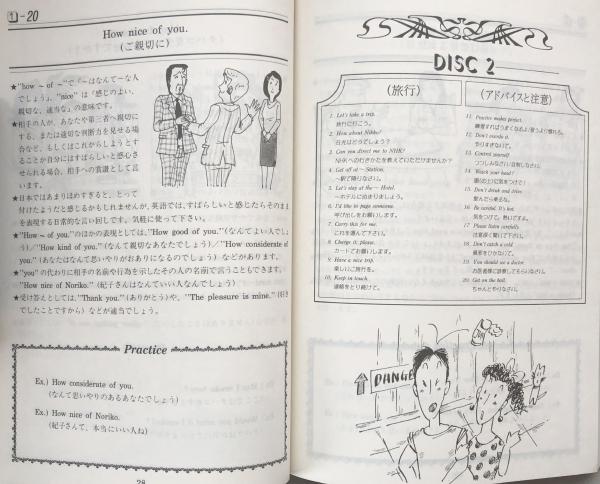 1-20
How nice of you.
(ご親切に)
★"how ～ of ～"で「～はなんて～な人
でしょう」、"nice" は「感じのよい、
親切な、適当な」の意味です。
★相手の人が、あなたや第三者へ親切に
する、または適切な判断力を見せる場
合など、もしくはこれからしようとす
ることが自分にはすばらしいと感心さ
せられる場合、相手への賞讃として言
います。
★日本ではあまりほめすぎると、とって
付けたようだと感じるかもしれませんが、英語では、すばらしいと感じたらそのまま
を表現する日常的な言い回しです。気軽に使って下さい。
★"How ～ of you."のほかの表現としては、"How good of you."(なんてよい人でしょ
う)/"How kind of you."(なんて親切なあなたでしょう)/"How considerate of
you."(あなたはなんて思いやりがおありになるのでしょう) などがあります。
★"you" の代わりに相手の名前や行為を示したその人の名前で言うこともできます。
"How nice of Noriko."(紀子さんはなんていい人なんでしょう)
★受け答えとしては、"Thank you."(ありがとう)や、"The pleasure is mine."(好き
でしたことですから)などが適当でしょう。
Practice
Ex.) How considerate of you.
(なんて思いやりのあるあなたでしょう)
Ex.) How nice of Noriko.
(紀子さんて、本当にいい人ね)
28
DISC 2
(旅行)
1. Let's take a trip.
旅行に行こう。
2. How about Nikko?
日光はどうでしょう？
3. Can you direct me to NHK?
NHKへの行きかたを教えていただけませんか？
4. Get off at ～ Station.
～駅で降りなさい。
5. Let's stay at the ～ Hotel.
～ホテルに泊まりましょう。
6. I'd like to page someone.
呼び出しをお願いします。
7. Carry this for me.
これを運んで下さい。
8. Charge it, please.
カードでお願いします。
9. Have a nice trip.
楽しいご旅行を。
10. Keep in touch.
連絡をとり続けて。
(アドバイスと注意)
11. Practice makes perfect.
練習すればうまくなるよ/習うより慣れろ。
12. Don't overdo it.
やりすぎないで。
13. Control yourself.
つつしみなさい/自制しなさい。
14. Watch your head!
頭(の上)に気をつけて！
15. Don't drink and drive.
飲んだら乗るな。
16. Be careful. It's hot.
気をつけて。熱いですよ。
17. Please listen carefully.
注意深く聞いて下さい。
18. Don't catch a cold.
風邪をひかないで。
19. You should see a doctor.
お医者様に診察してもらいなさい。
20. Get on the ball.
ちゃんとやりなさい。
DANGE